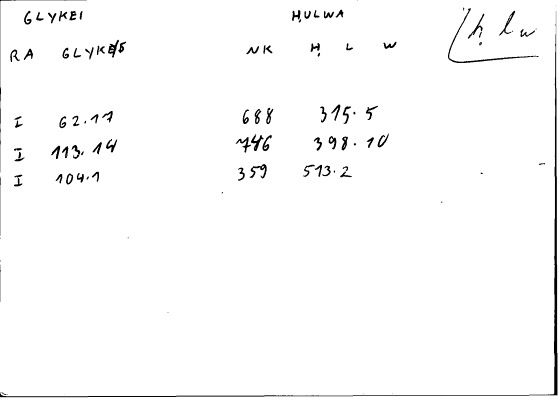 GLYKEI ḤULWA
ḥ l w
RA GLYKYS NK Ḥ L W
I 62.17 688 315.5
II 113.14 746 398.10
I 104.1 359 513.2